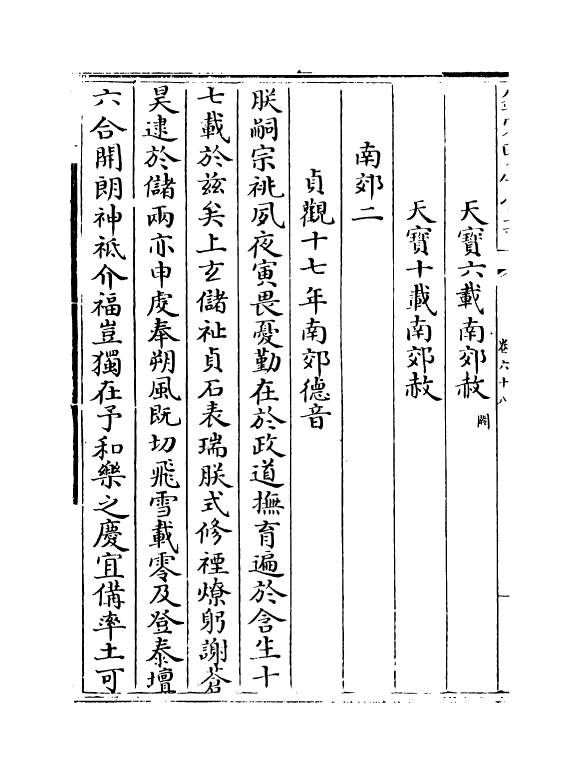 天寶六載南郊赦闕
卷六十八
天寶十載南郊赦
南郊二
貞觀十七年南郊德音
朕嗣宗祧夙夜寅畏憂勤在於政道撫育遍於含生十
七載於兹矣上玄儲祉貞石表瑞朕式修禋燎躬謝蒼
昊逮於儲兩亦申䖍奉朔風既切飛雪載零及登泰壇
六合開朗神祗介福豈獨在予和樂之慶宜備率土可